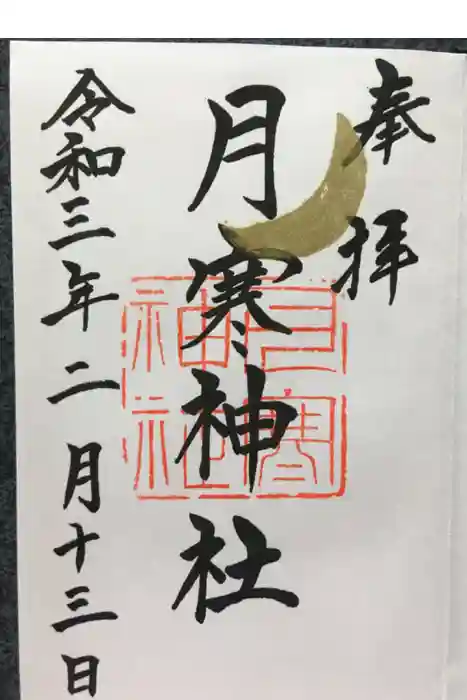 奉拝
月寒神社
令和三年二月十三日
月寒神社